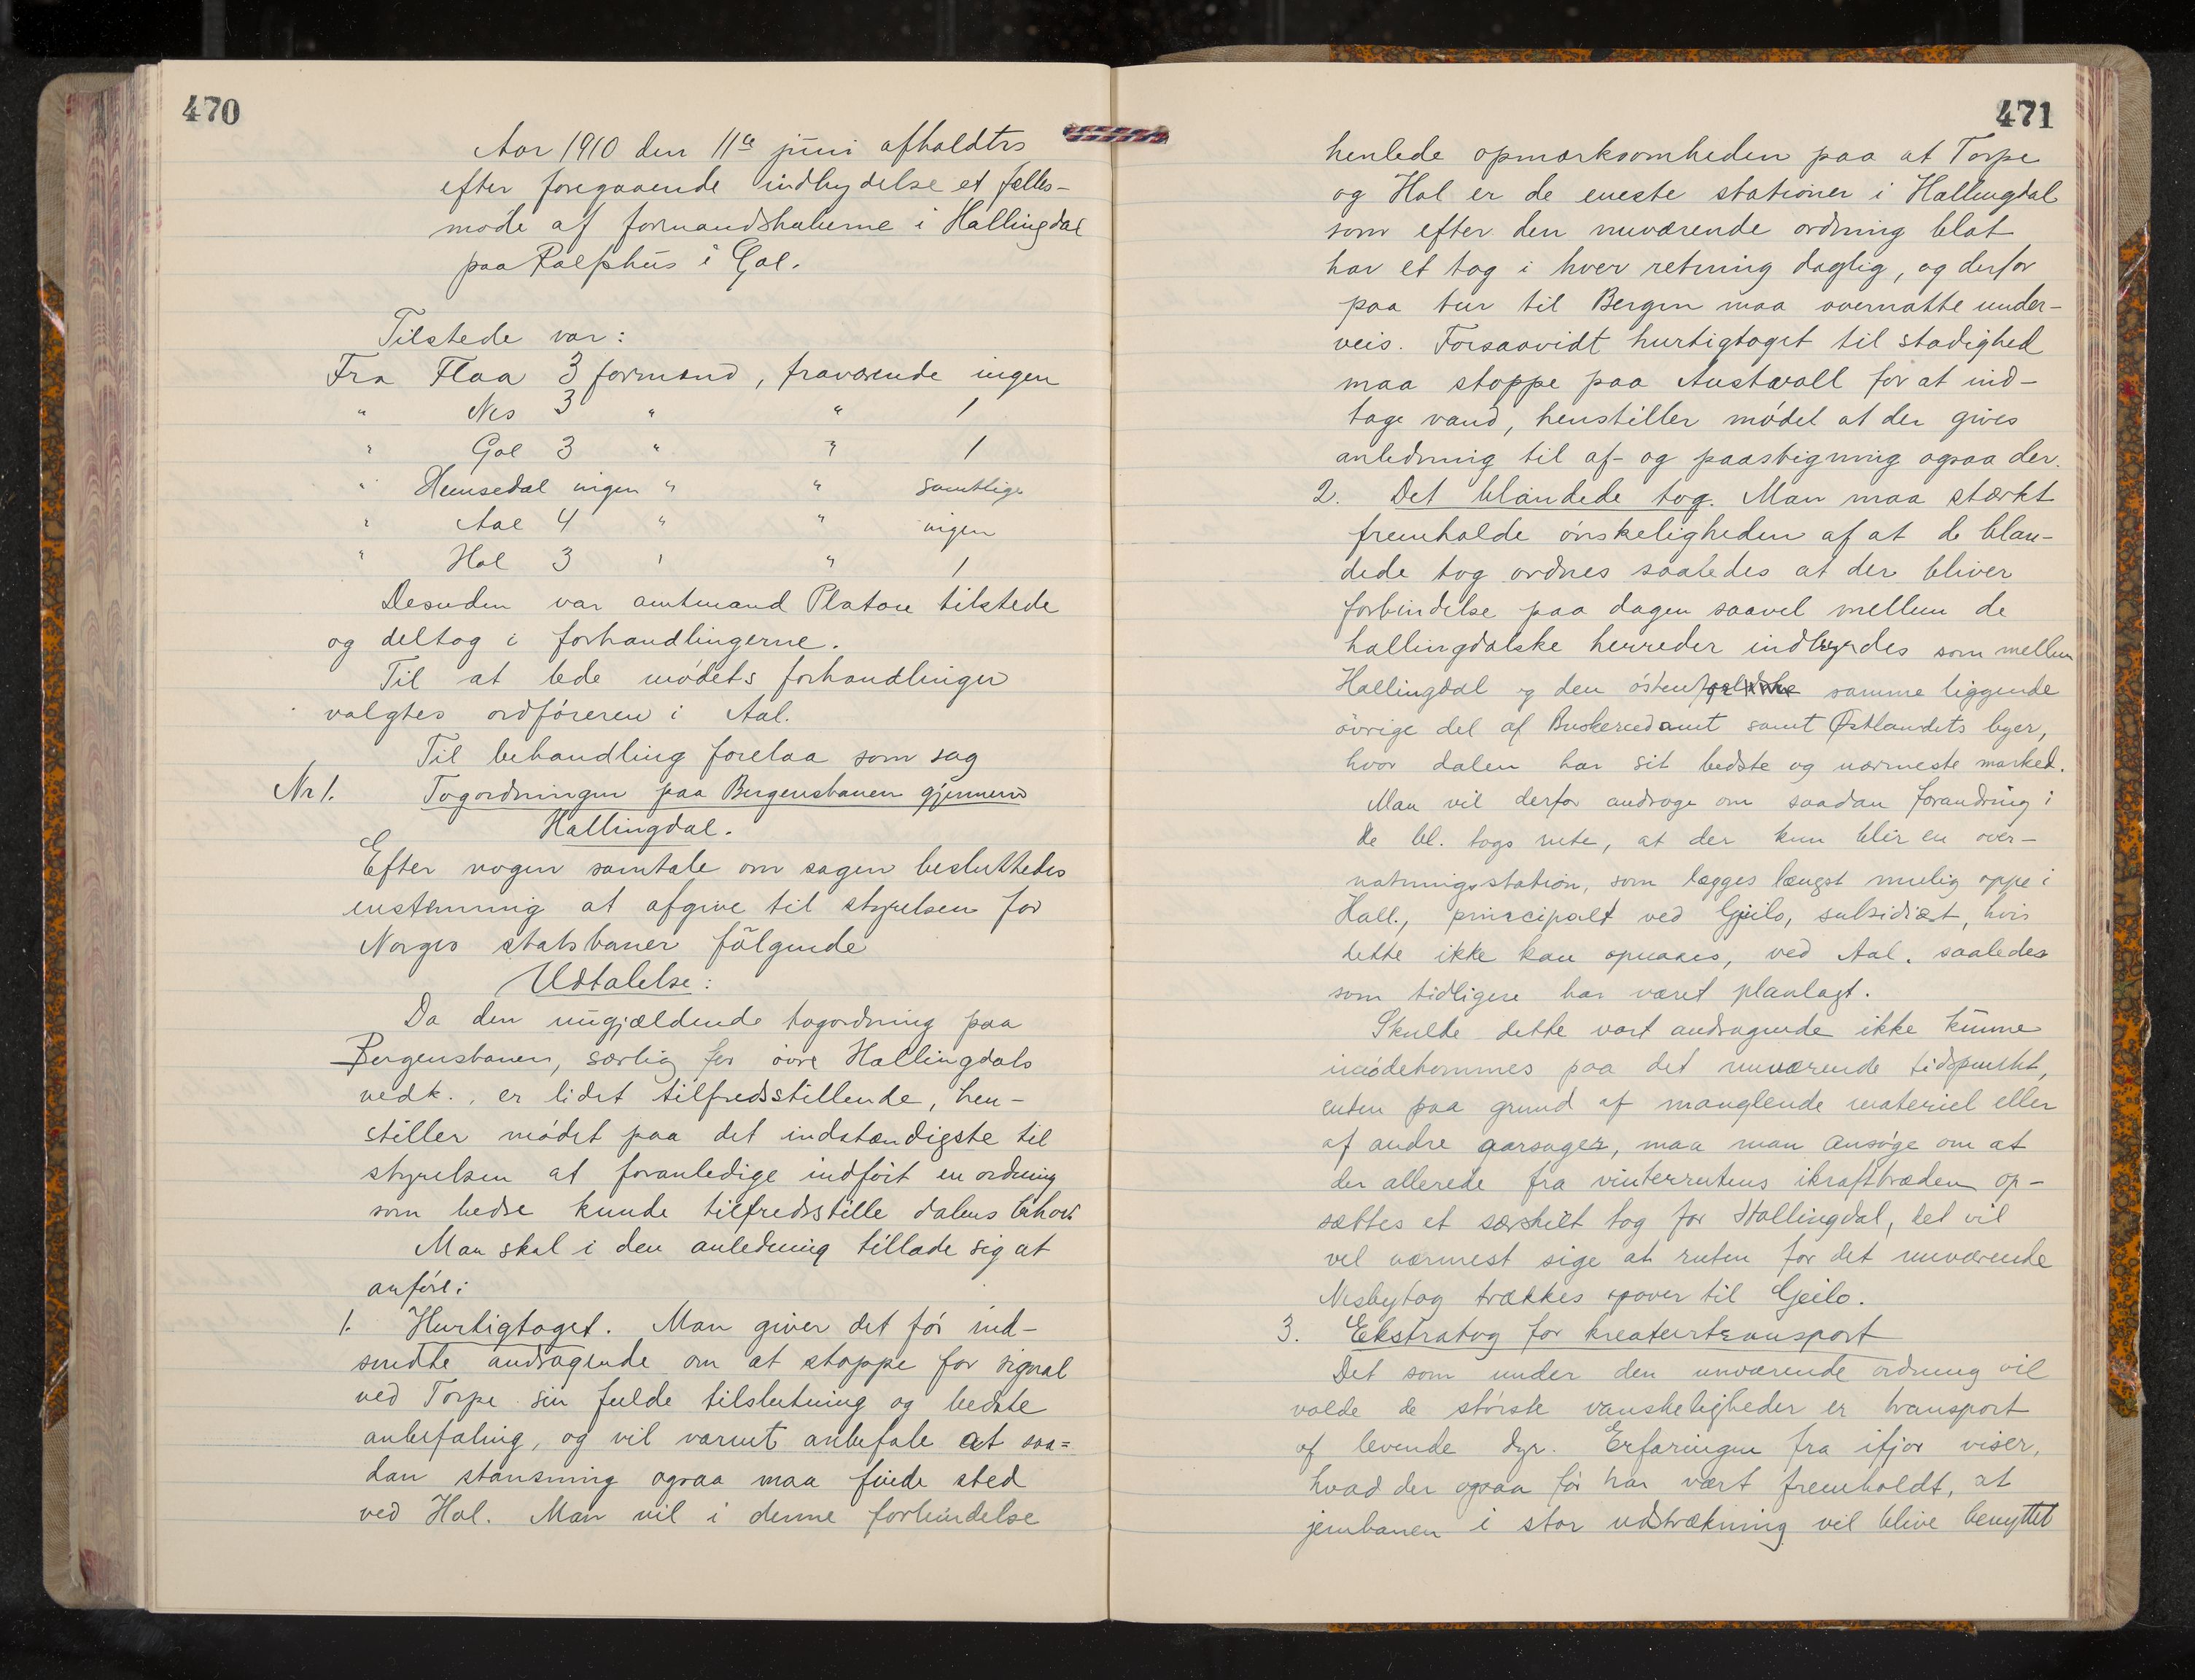 470
Aar 1910 den 11te juni afholdtes
efter foregaaende indbydelse et fælles-
møde af formandskaberne i Hallingdal
paa Ralphus i Gol.
Tilstede var:
Fra Flaa 3 formænd, fraværende ingen
" Nes 3 " " 1
" Gol 3 " " 1
" Hemsedal ingen " " samtlige
" Aal 4 " " ingen
" Hol 3 " " 1
Desuden var amtmand Platou tilstede
og deltog i forhandlingerne.
Til at lede mødets forhandlinger
valgtes ordføreren i Aal.
Til behandling forelaa som sag
Nr 1. Togordningen paa Bergensbanen gjennem
Hallingdal.
Efter nogen samtale om sagen besluttedes
enstemmig at afgive til styrelsen for
Norges statsbaner følgende
Udtalelse:
Da den nugjældende togordning paa
Bergensbanen, særlig for øvre Hallingdals
vedk., er lidet tilfredsstillende, hen-
stiller mødet paa det indstændigste til
styrelsen at foranledige indført en ordning
som bedre kunde tilfredsstille dalens behov.
Man skal i den anledning tillade sig at
anføre:
1. Hurtigtoget. Man giver det før ind-
sendte andragende om at stoppe for signal
ved Torpe sin fulde tilslutning og bedste
anbefaling, og vil varmt anbefale at saa=
dan stansning ogsaa maa finde sted
ved Hol. Man vil i denne forbindelse
471
henlede opmærksomheden paa at Torpe
og Hol er de eneste stationer i Hallingdal
som efter den nuværende ordning blot
har et tog i hver retning daglig, og derfor
paa tur til Bergen maa overnatte under-
veis. Forsaavidt hurtigtoget til stadighed
maa stoppe paa Austavoll for at ind-
tage vand, henstiller mødet at der gives
anledning til af- og paastigning ogsaa der.
2. Det blandede tog. Man maa stærkt
fremholde ønskeligheden af at de blan-
dede tog ordnes saaledes at der bliver
forbindelse paa dagen saavel mellem de
hallingdalske herreder indbyrdes som mellem
Hallingdal og den østenfor samme liggende
øvrige del af Buskerud amt samt Østlandets byer,
hvor dalen har sit bedste og nærmeste marked.
Man vil derfor andrage om saadan forandring i
de bl. togs rute, at der kun blir en over-
natningsstation, som lægges længst mulig oppe i
Hall., principalt ved Gjeilo, subsidiært, hvis
dette ikke kan opnaaes, ved Aal, saaledes
som tidligere har været planlagt.
Skulde dette vort andragende ikke kunne
imødekommes paa det nuværende tidspunkt,
enten paa grund af manglende materiel eller
af andre aarsager, maa man ansøge om at
der allerede fra vinterrutens ikrafttræden op-
sættes et særskilt tog for Hallingdal, det vil
vel nærmest sige at ruten for det nuværende
Nesbytog trækkes opover til Gjeilo.
3. Ekstratog for kreaturtransport
Det som under den nuværende ordning vil
volde de største vanskeligheder er transport
af levende dyr. Erfaringen fra ifjor viser,
hvad der ogsaa før har vært fremholdt, at
jernbanen i stor udstrækning vil blive benyttet